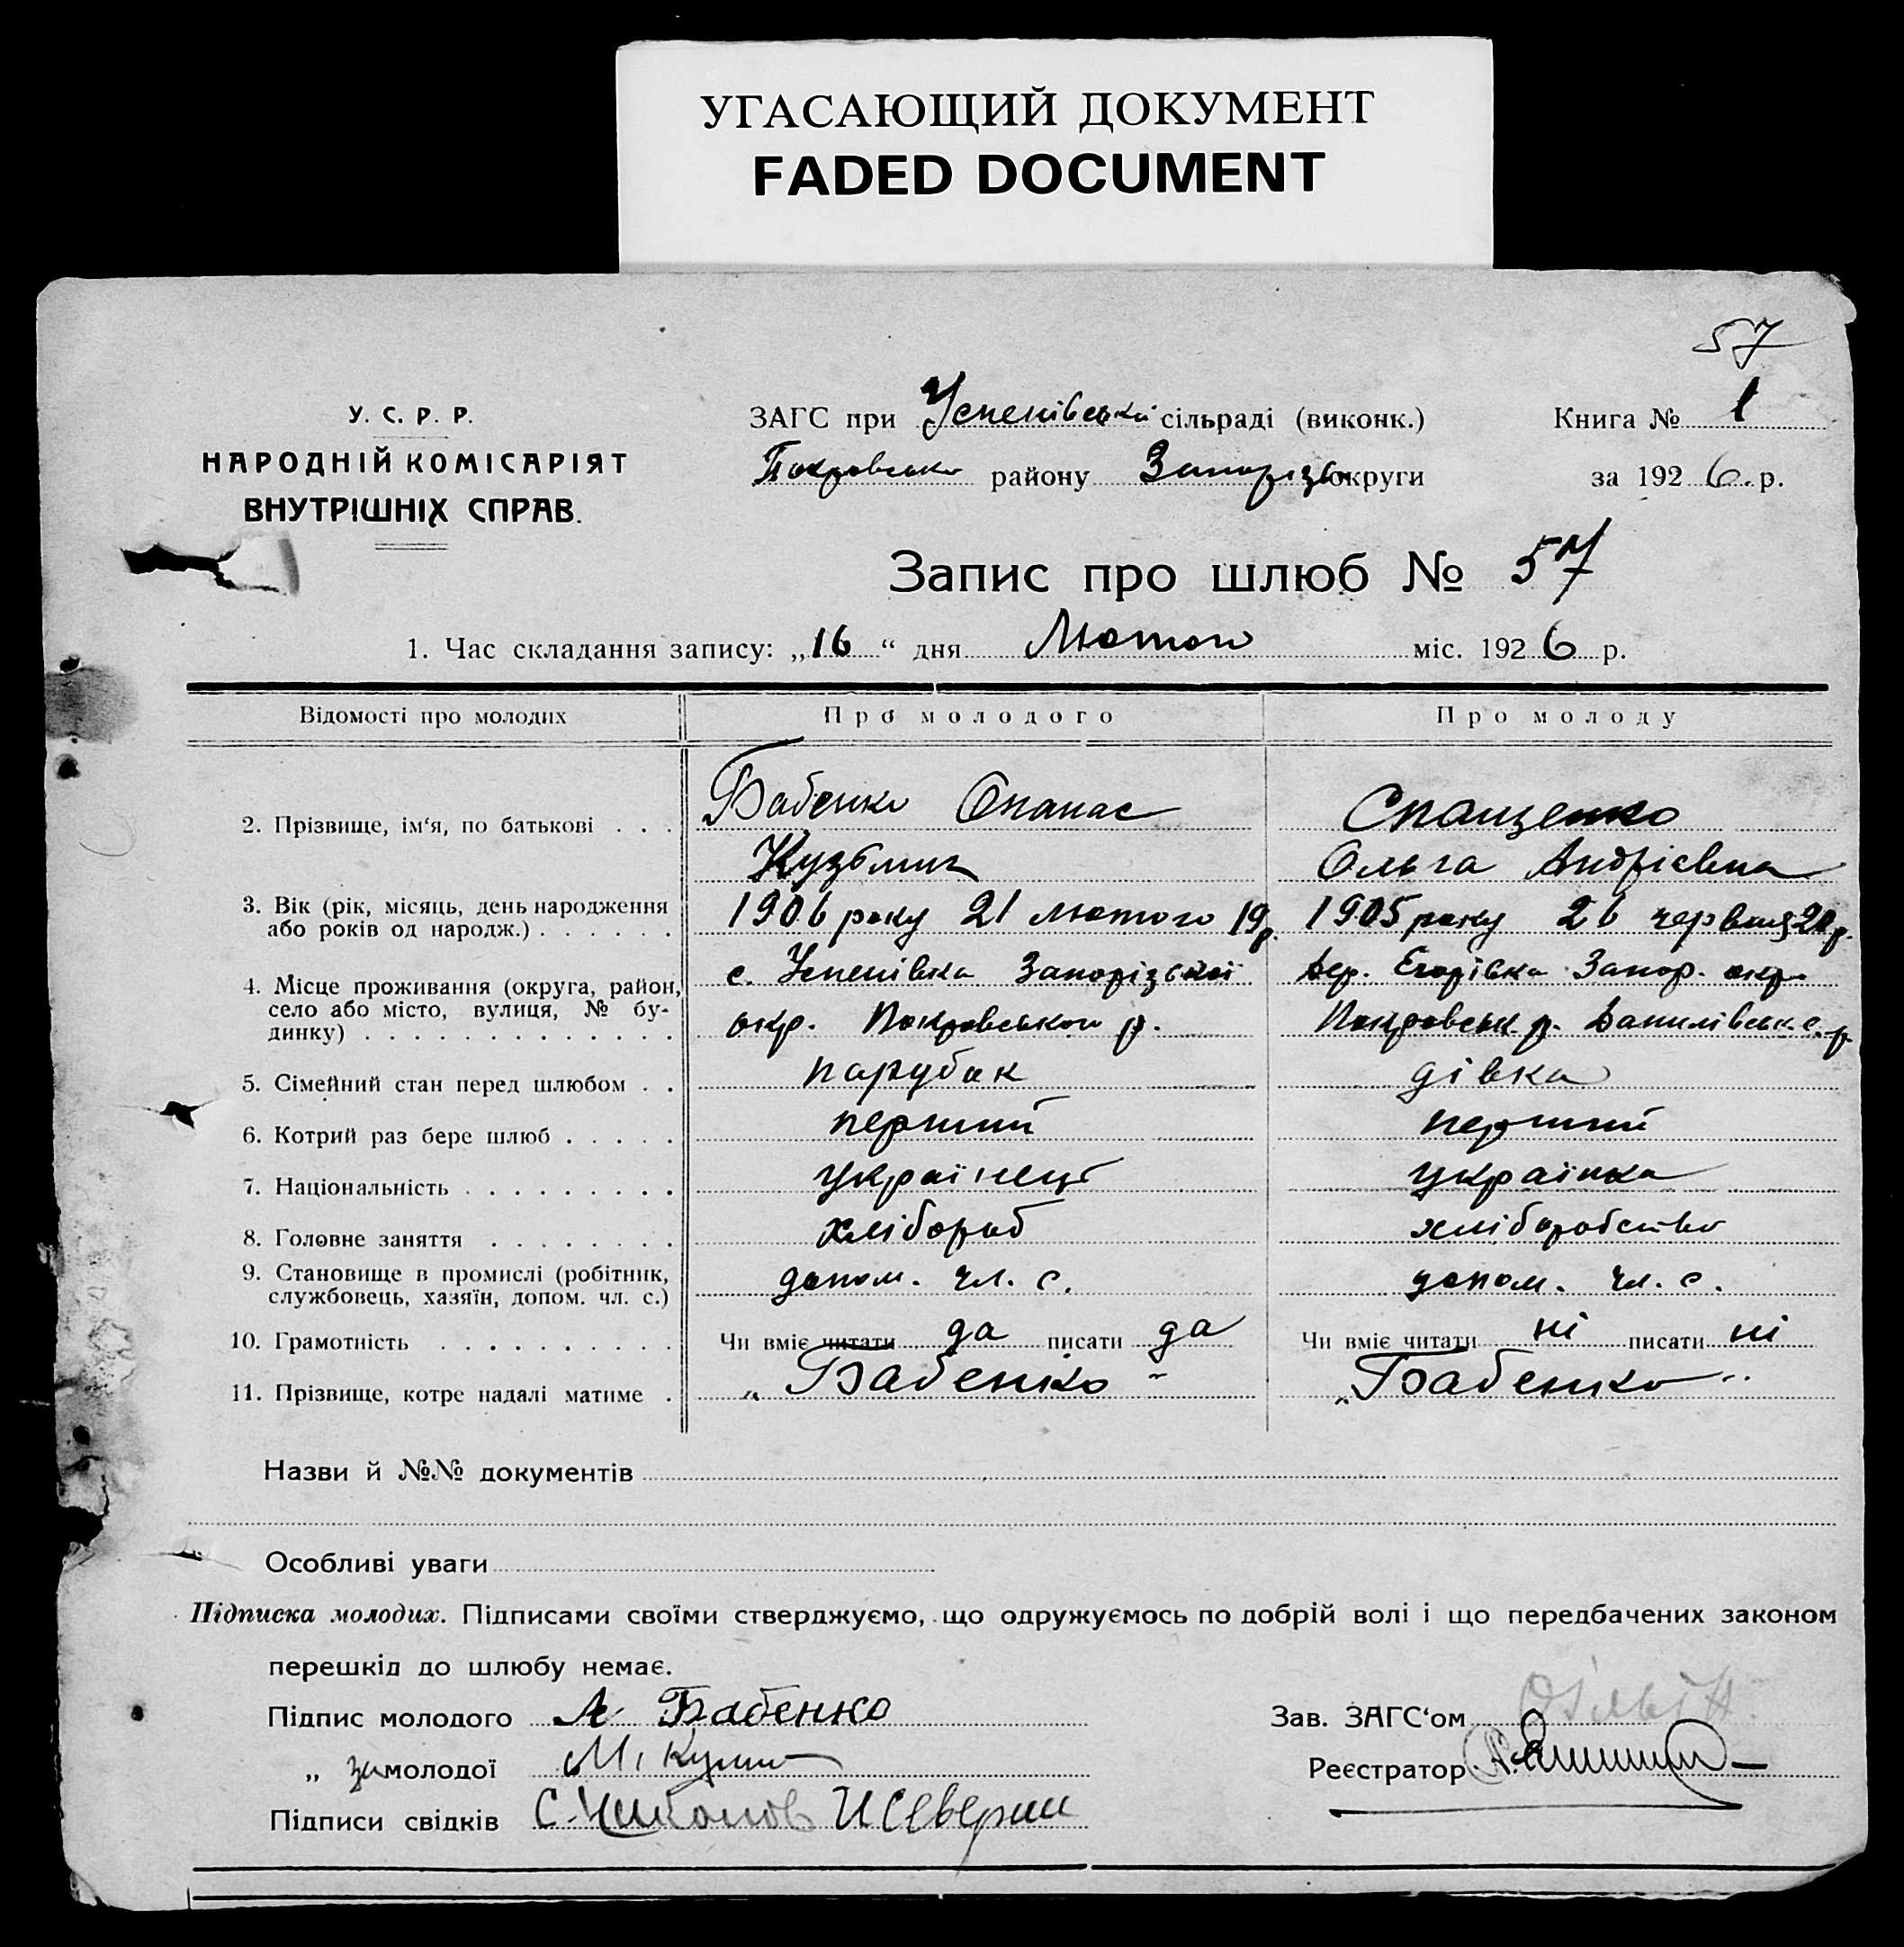 УГАСАЮЩИЙ ДОКУМЕНТ
FADED DOCUMENT
57
У. С. Р. Р.
НАРОДНІЙ КОМІСАРІЯТ
ВНУТРІШНІХ СПРАВ.
ЗАГС при Успенівській сільраді (виконк.)
Книга № 1
Покровсько району Запорізь округи
за 1926 р.
Запис про шлюб № 57
1. Час складання запису: „16“ дня Лютого міс. 1926 р.
Відомості про молодих Про молодого Про молоду
2. Прізвище, ім‘я, по батькові . . . Бабенко Опанас Спащенко
Кузьмич Ольга Андрієвна
3. Вік (рік, місяць, день народження 1906 року 21 лютого 19 р. 1905 року 26 червня 20 р.
або років од народж.) . . . . . .
4. Місце проживання (округа, район, с. Успенівка Запорізької дер. Єгорівка Запор. окр.
село або місто, вулиця, № бу- окр. Покровськой р. Покровськ. р. Данилівськ. с. р.
динку) . . . . . . . . . . . . .
5. Сімейний стан перед шлюбом . . парубак дівка
6. Котрий раз бере шлюб . . . . . перший перший
7. Національність . . . . . . . . . українець українка
8. Головне заняття . . . . . . . . хлібороб хліборобство
9. Становище в промислі (робітник, допом. чл. с. допом. чл. с.
службовець, хазяїн, допом. чл. с.)
10. Грамотність . . . . . . . . . . Чи вміє читати да писати да Чи вміє читати ні писати ні
11. Прізвище, котре надалі матиме . „Бабенко“ „Бабенко“
Назви й №№ документів
Особливі уваги
Підписка молодих. Підписами своїми стверджуємо, що одружуємось по добрій волі і що передбачених законом
перешкід до шлюбу немає.
Підпис молодого А Бабенко
Зав. ЗАГС‘ом
„ за молодої М.
Реєстратор
Підписи свідків С. И Северин